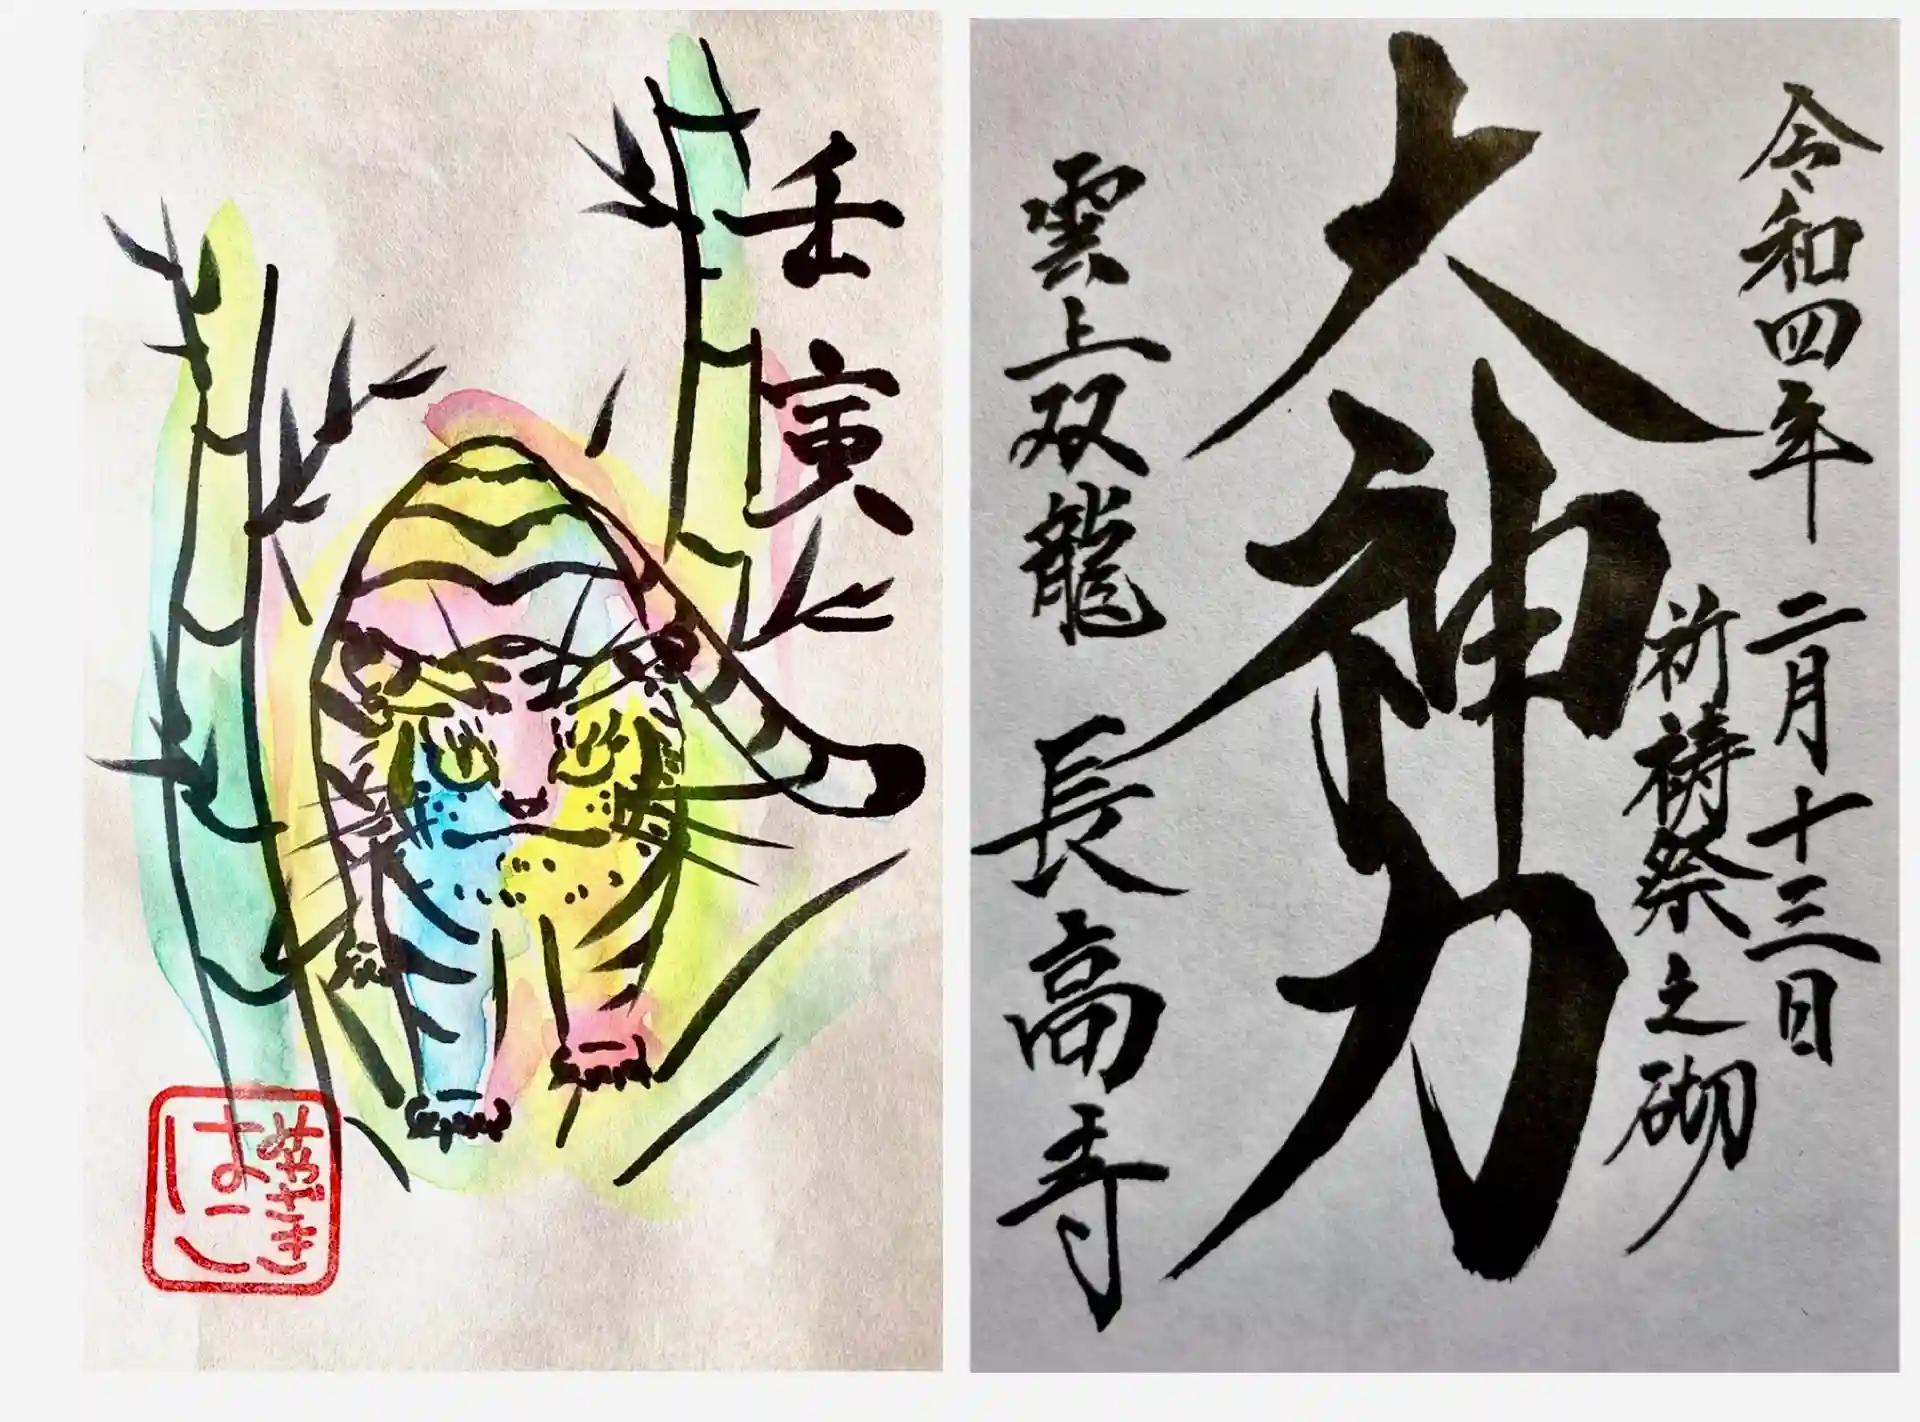 壬寅
みやざき
令和四年 二月十三日
祈祷祭之砌
大神力
雲上双龍 長高寺